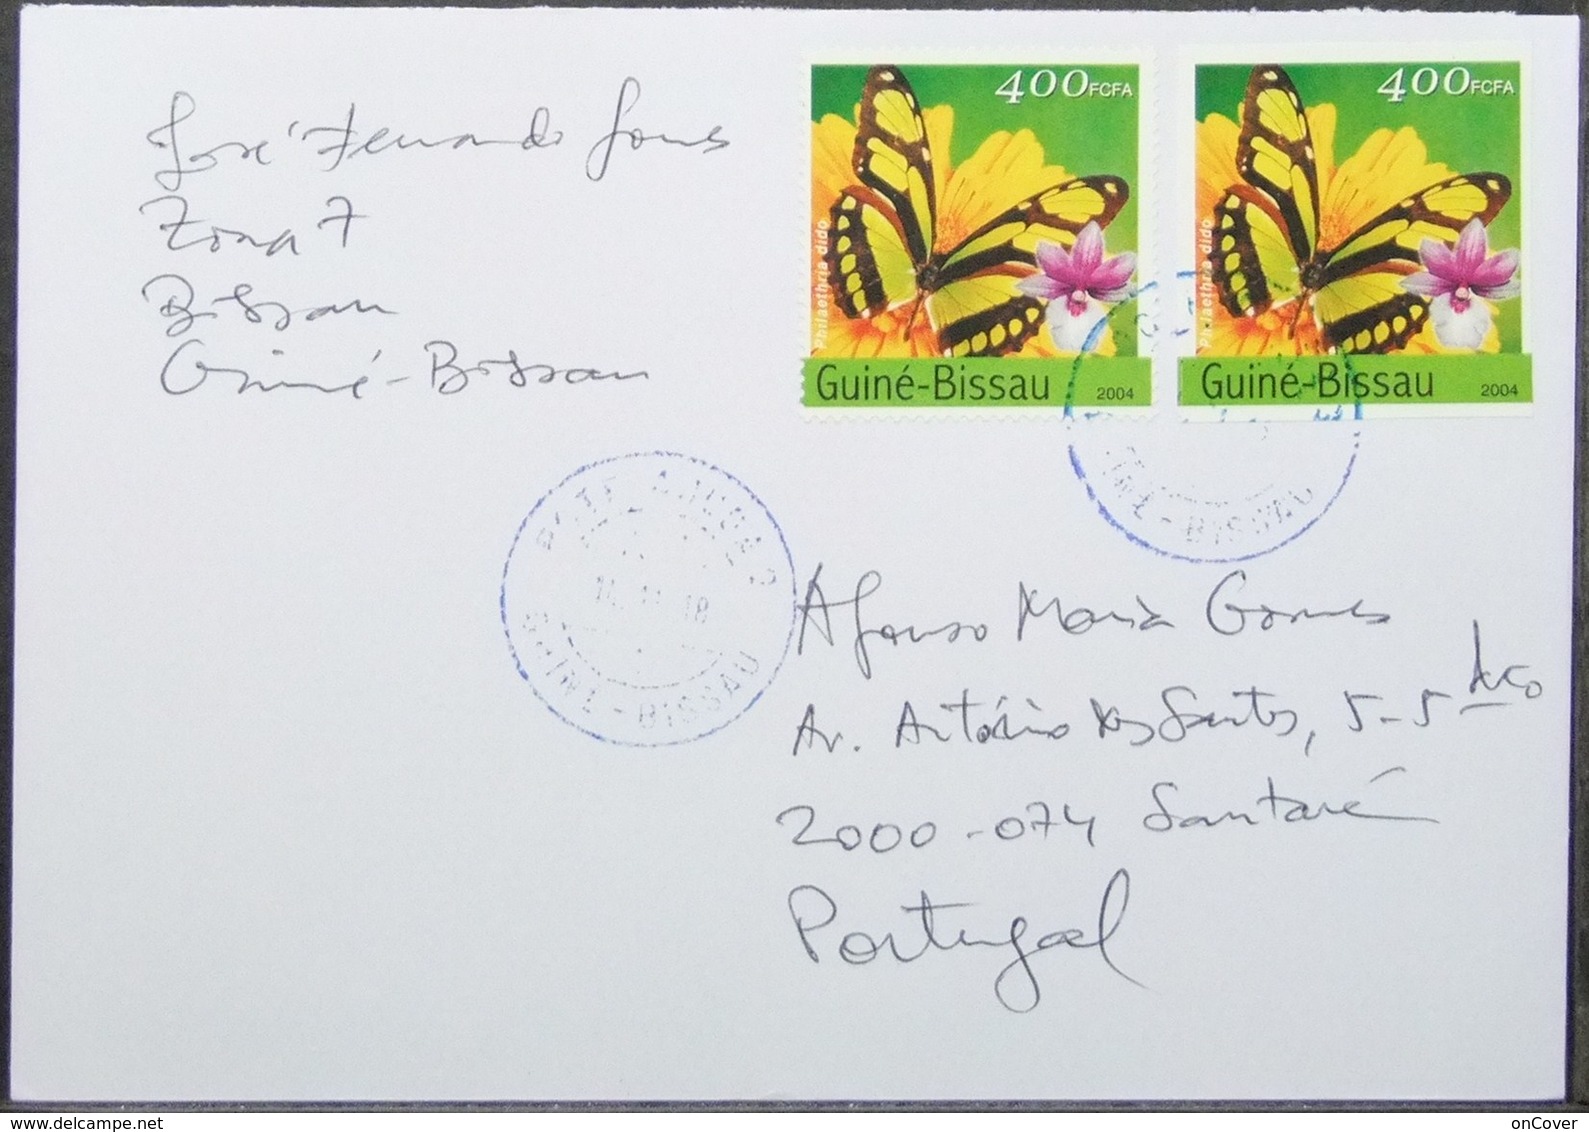 José Fernando Gomes
Zona 7
Bissau
Guiné-Bissau
400 FCFA
Philaethria dido
Guiné-Bissau 2004
400 FCFA
Philaethria dido
Guiné-Bissau 2004
18
-BISSAU
-BISSAU
Afonso Maria Gomes
Av. António dos Santos, 5-5
2000-074 Santaré
Portugal
www.delcampe.net
onCover